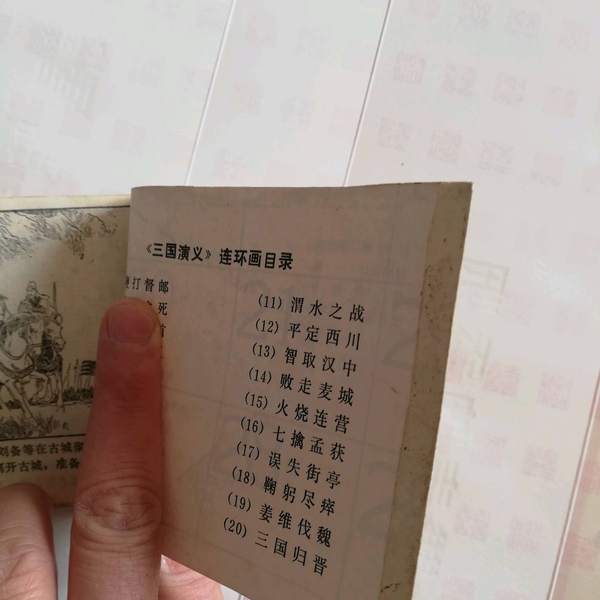 《三国演义》连环画目录
打督邮
死
(11) 渭水之战
(12) 平定西川
(13) 智取汉中
(14) 败走麦城
(15) 火烧连营
(16) 七擒孟获
(17) 误失街亭
(18) 鞠躬尽瘁
(19) 姜维伐魏
(20) 三国归晋
刘备等在古城
离开古城，准备